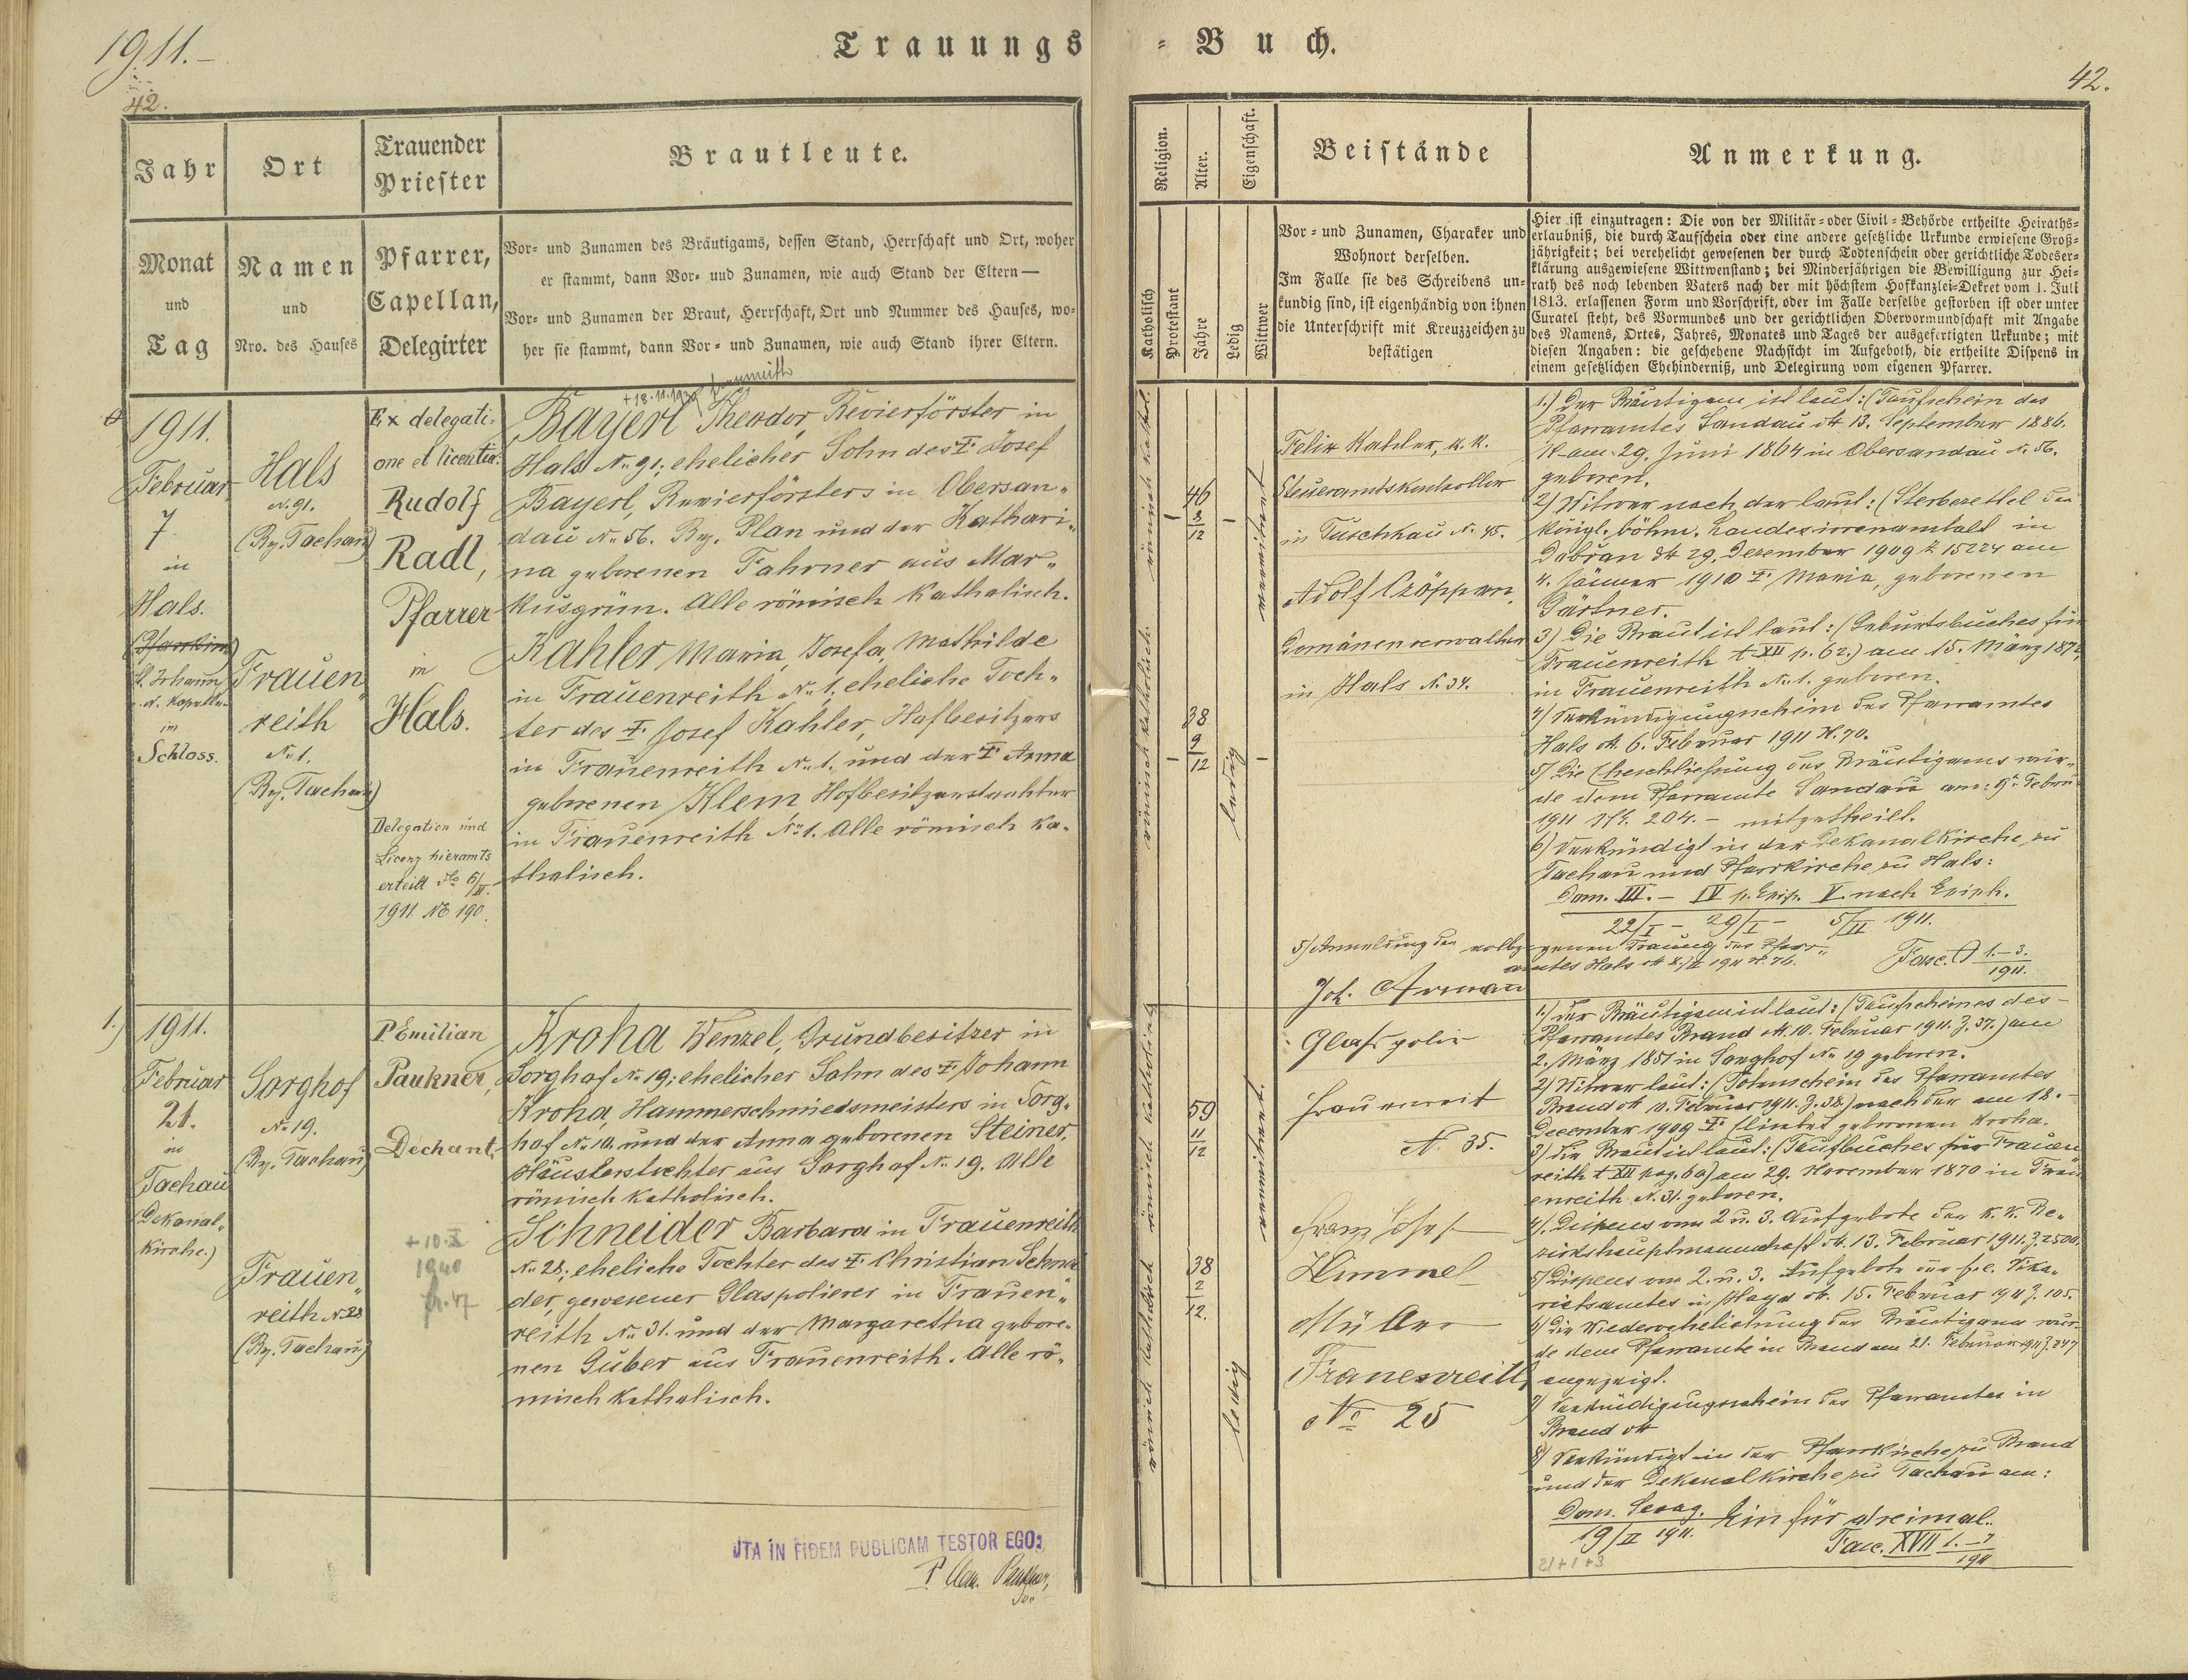 1911.–
Trauungs
= Buch.
42.
42.
Jahr
Ort
Trauender
Priester
Brautleute.
Monat
und
Tag
Namen
und
Nro. des Hauses
Pfarrer,
Capellan,
Delegirter
Vor= und Zunamen des Bräutigams, dessen Stand, Herrschaft und Ort, woher
er stammt, dann Vor= und Zunamen, wie auch Stand der Eltern —
Vor= und Zunamen der Braut, Herrschaft, Ort und Nummer des Hauses, wo=
her sie stammt, dann Vor= und Zunamen, wie auch Stand ihrer Eltern.
Religion.
Alter.
Eigenschaft.
Beistände
Anmerkung.
Katholisch
Protestant
Jahre
Ledig
Wittwer
Vor= und Zunamen, Charakter und
Wohnort derselben.
Im Falle sie des Schreibens un=
kundig sind, ist eigenhändig von ihnen
die Unterschrift mit Kreuzzeichen zu
bestätigen
Hier ist einzutragen: Die von der Militär= oder Civil=Behörde ertheilte Heiraths=
erlaubniß, die durch Taufschein oder eine andere gesetzliche Urkunde erwiesene Groß=
jährigkeit; bei verehelicht gewesenen der durch Todtenschein oder gerichtliche Todeser=
klärung ausgewiesene Wittwenstand; bei Minderjährigen die Bewilligung zur Hei=
rath des noch lebenden Vaters nach der mit höchstem Hofkanzlei=Dekret vom 1. Juli
1813. erlassenen Form und Vorschrift, oder im Falle derselbe gestorben ist oder unter
Curatel steht, des Vormundes und der gerichtlichen Obervormundschaft mit Angabe
des Namens, Ortes, Jahres, Monates und Tages der ausgefertigten Urkunde; mit
diesen Angaben: die geschehene Nachsicht im Aufgeboth, die ertheilte Dispens in
einem gesetzlichen Ehehinderniß, und Delegirung vom eigenen Pfarrer.
1911.
Februar
7
in
Hals.
(Pfarrkirche)
St. Johann
in
Schloss.
Hals
N. 91.
(Bz. Tachau)
Frauen„
reith
N. 1.
(Bz. Tachau)
Ex delegati„
one et licentia:
Rudolf
Radl,
Pfarrer
in
Hals.
Delegation und
Licenz hieramts
erteilt dto 6/II.
1911 No 190.
+ 18.11.1930 Frauenreith
Bayerl Theodor, Revierförster in
Hals N. 91; ehelicher Sohn des † Josef
Bayerl, Revierförsters in Obersan„
dau N. 56. Bz. Plan und der Kathari„
na geborenen Fahrner aus Mar„
kusgrün. Alle römisch katholisch.
Kahler Maria, Josefa, Mathilde
in Frauenreith N. 1; eheliche Toch„
ter des † Josef Kahler, Hofbesitzers
in Frauenreith N. 1. und der † Anna
geborenen Klem Hofbesitzerstochter
in Frauenreith N. 1. Alle römisch ka„
tholisch.
römisch kathol.
46
3
12
verwitwet
römisch katholisch
38
9
12
ledig
Felix Kahler, k. k.
Steueramtskontrollor
in Tuschkau N. 45.
Adolf Czöppan,
Domänenverwalter
in Hals N. 34.
1.) Der Bräutigam ist laut: (Taufschein des
Pfarramtes Sandau dt 13. September 1886.
am 29. Juni 1864 in Obersandau N. 56.
geboren.
2.) Witwer nach der laut: (Sterbezettel der
königl. böhm. Landesirrenanstalt in
Dobřan dt 29. Dezember 1909 Z. 15224 am
4. Jänner 1910 † Maria, geborenen
Gärtner.
3) Die Braut ist laut: (Geburtsbuches für
Frauenreith t. XII p. 62.) am 15. März 1872,
in Frauenreith N. 1. geboren.
4) Verkündigungschein des Pfarramtes
Hals dt. 6. Februar 1911 N. 70.
5) Die Eheschließung des Bräutigams wur„
de dem Pfarramte Sandau am: 9. Febru
1911 N. 204. – mitgetheilt.
6) Verkündigt in der Dekanalkirche zu
Tachau und Pfarrkirche zu Hals:
Dom. III. – IV p. Epip. V. nach Epiph.
22/I – 29/I – 5/II 1911.
5) Anmeldung der vollzogenen Trauung des Pfarr„
amtes Hals dt 8/II 1911 N. 76.
Fasc. 1.–3.
1911.
1.)
1911.
Februar
21.
in
Tachau
(Dekanal„
kirche.)
Sorghof
N. 19.
(Bz. Tachau)
Frauen„
reith N. 28
(Bz. Tachau)
P. Emilian
Paukner,
Dechant.
+ 10. X
1940
Kroha Wenzel, Grundbesitzer in
Sorghof N. 19; ehelicher Sohn des † Johann
Kroha, Hammerschmiedsmeisters in Sorg„
hof N. 10. und der Anna geborenen Steiner,
Häuslerstochter aus Sorghof N. 19. Alle
römisch katholisch.
Schneider Barbara in Frauenreith
N. 28; eheliche Tochter des † Christian Schnei
der, gewesener Glaspolierer in Frauen„
reith N. 31. und der Margaretha gebore„
nen Guber aus Frauenreith. Alle rö„
misch katholisch.
römisch katholisch
59
11
12
verwitwet
römisch katholisch
38
2
12.
ledig
Joh. Arman
Glaspolir
Frauenreit
N. 35.
Franz Josef
Himmel
Müller
Frauenreith
No 25
1.) Der Bräutigam ist laut: (Taufscheines des
Pfarramtes Brand dt. 10. Februar 1911. Z. 37.) am
2. März 1851 in Sorghof N. 19 geboren.
2) Witwer laut: (Totenschein des Pfarramtes
Brand dt 10. Februar 1911. Z. 38.) nach der am 18.
Dezember 1909 † Elisabet geborenen Kroha.
3) Die Braut ist laut: (Taufbuches für Frauen
reith t. XII pag. 60) am 29. November 1870 in Frau
enreith N. 31. geboren.
4). Dispens vom 2 u. 3. Aufgebote der K. K. Be„
zirkshauptmannschaft dt. 13. Februar 1911. Z. 2500.
5) Dispens vom 2. u. 3. Aufgebote des f. e. Vika„
riatsamtes in Hayd dt. 15. Februar 1911 Z. 105.
6) Die Wiederverehelichung des Bräutigams wur„
de dem Pfarramte in Brand am 21. Februar 1911 Z. 247
angezeigt.
7) Verkündigungschein des Pfarramtes in
Brand dt
8) Verkündigt in der Pfarrkirche zu Brand
und der Dekanalkirche zu Tachau am:
Dom. Sexag. Ein für dreimal.
19/II 1911.
Fasc. XVII 1.–7
1911
21+1+3
UTA IN FIDEM PUBLICAM TESTOR EGO:
P. Paukner,